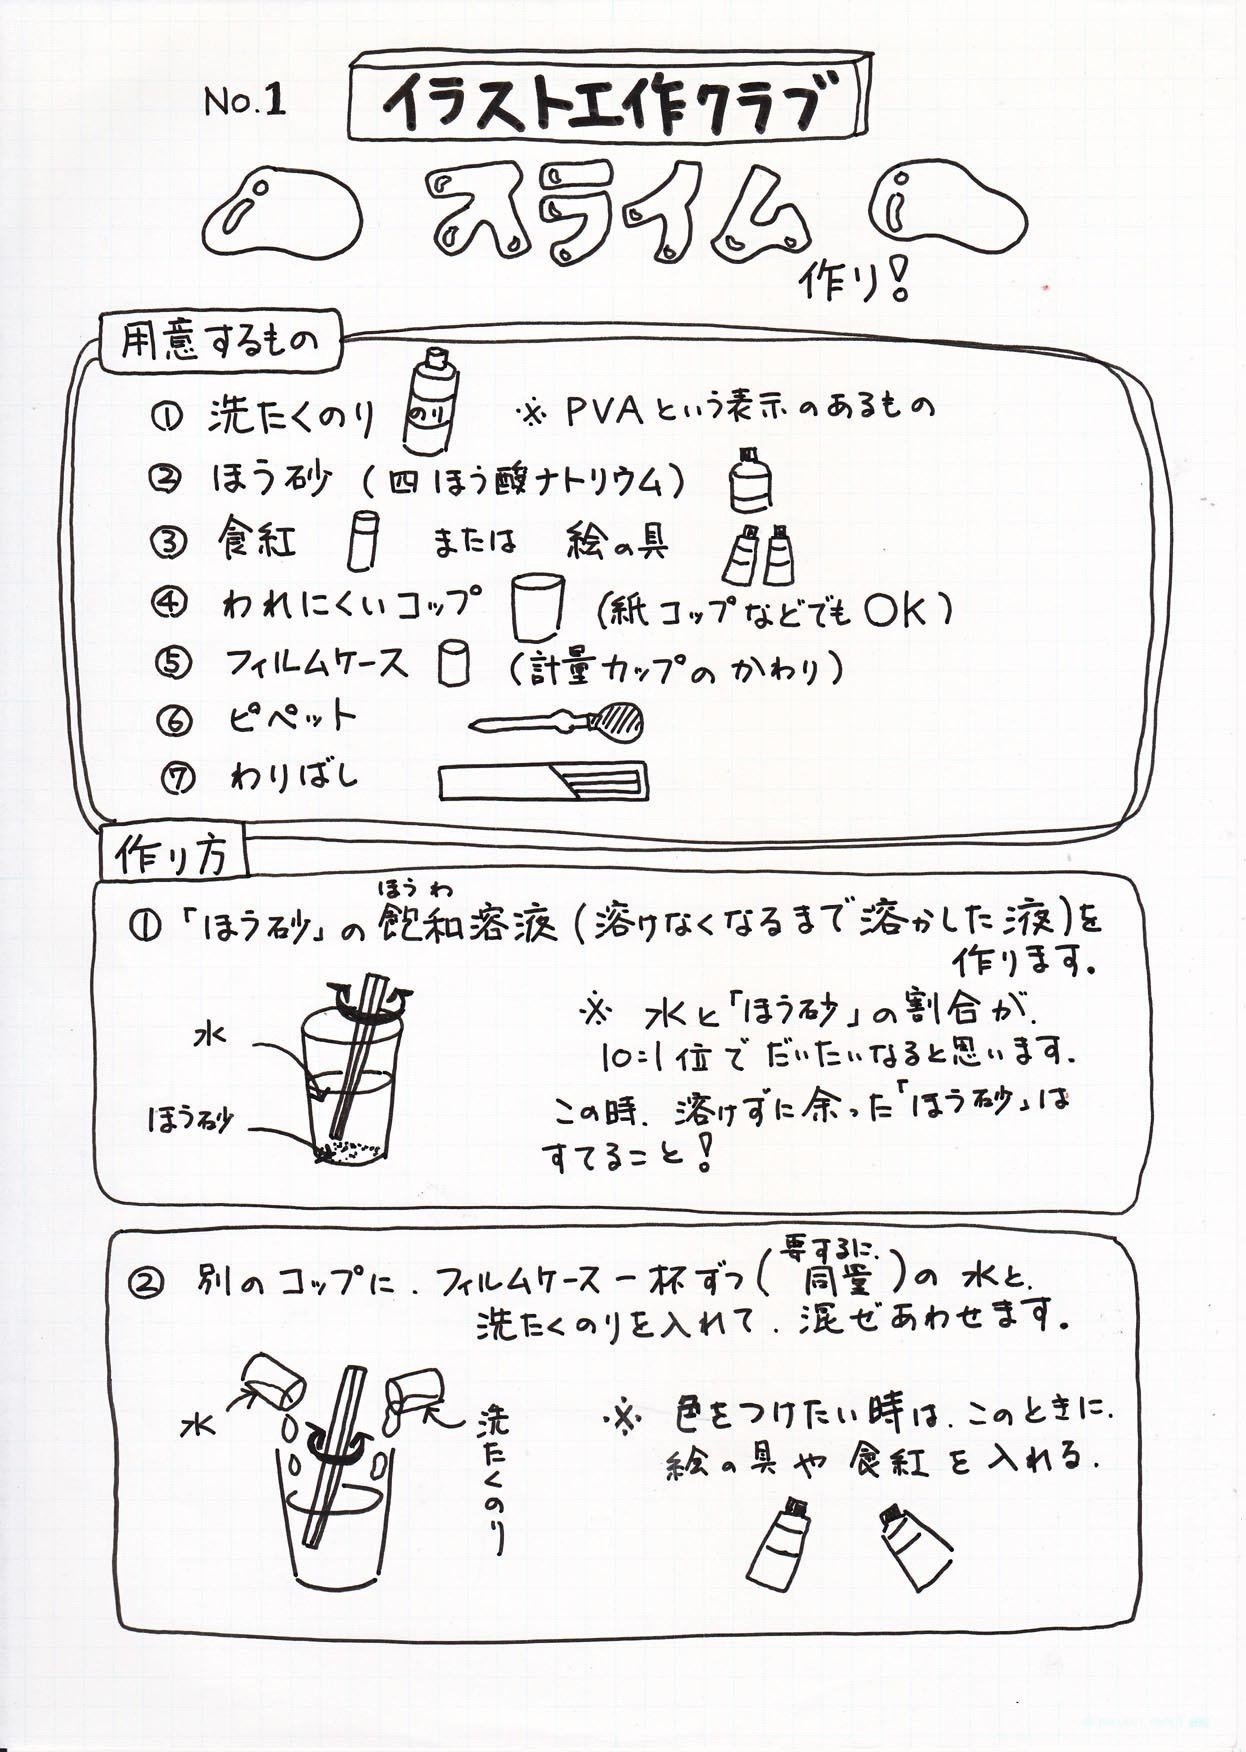 No.1
イラスト工作クラブ
スライム
作り!
用意するもの
① 洗たくのり のり ※ PVAという表示のあるもの
② ほう砂 (四ほう酸ナトリウム)
③ 食紅 または 絵の具
④ われにくいコップ (紙コップなどでもOK)
⑤ フィルムケース (計量カップのかわり)
⑥ ピペット
⑦ わりばし
作り方
ほうわ
①「ほう砂」の飽和溶液(溶けなくなるまで溶かした液)を
作ります。
※ 水と「ほう砂」の割合が、
10:1位でだいたいなると思います。
この時、溶けずに余った「ほう砂」は
すてること!
水
ほう砂
要するに、
② 別のコップに、フィルムケース一杯ずつ(同量)の水と、
洗たくのりを入れて、混ぜあわせます。
水
洗たくのり
※ 色をつけたい時は、このときに、
絵の具や食紅を入れる。